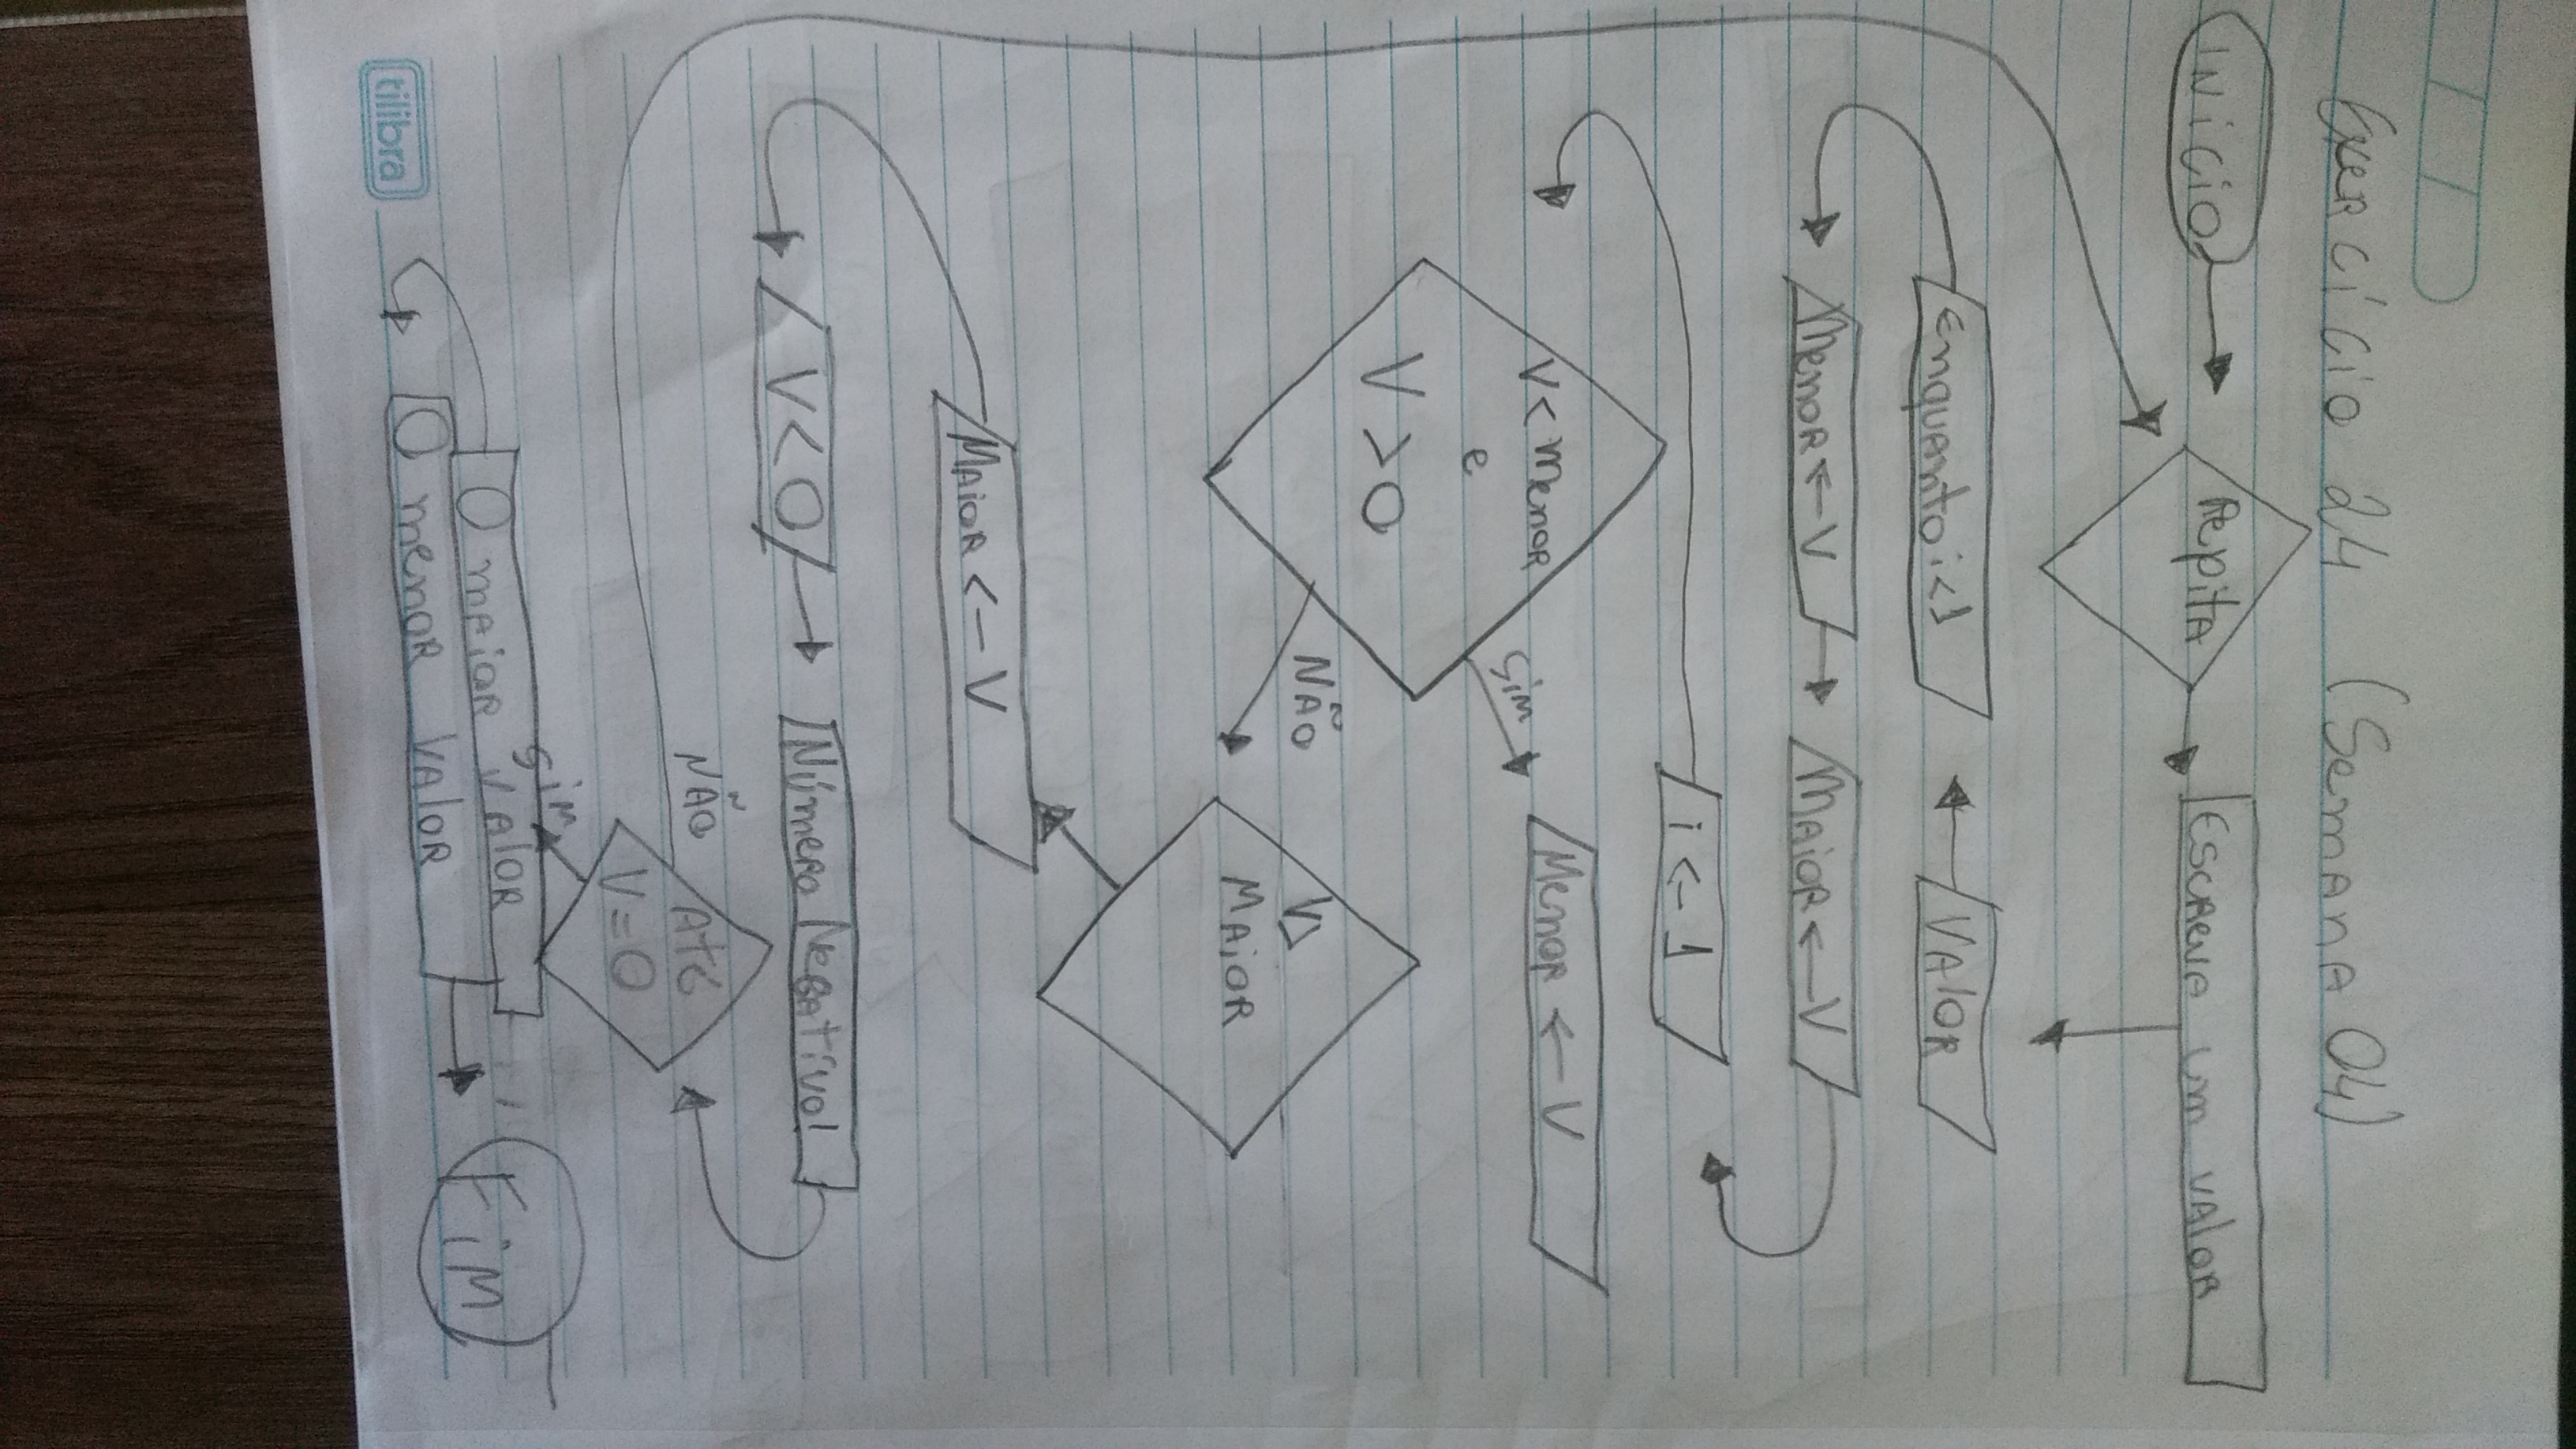 Exercício 24 (Semana 04)
INÍCIO
Repita
ESCREVA um VALOR
VALOR
Enquanto i<1
Menor ← V
MAIOR ← V
i ← 1
V < menor
e
V > 0
Sim
Menor ← V
NÃO
V>
MAIOR
MAIOR <- V
V < 0
Número Negativo!
Até
V = 0
NÃO
Sim
O maior VALOR
O menor VALOR
FIM
tilibra